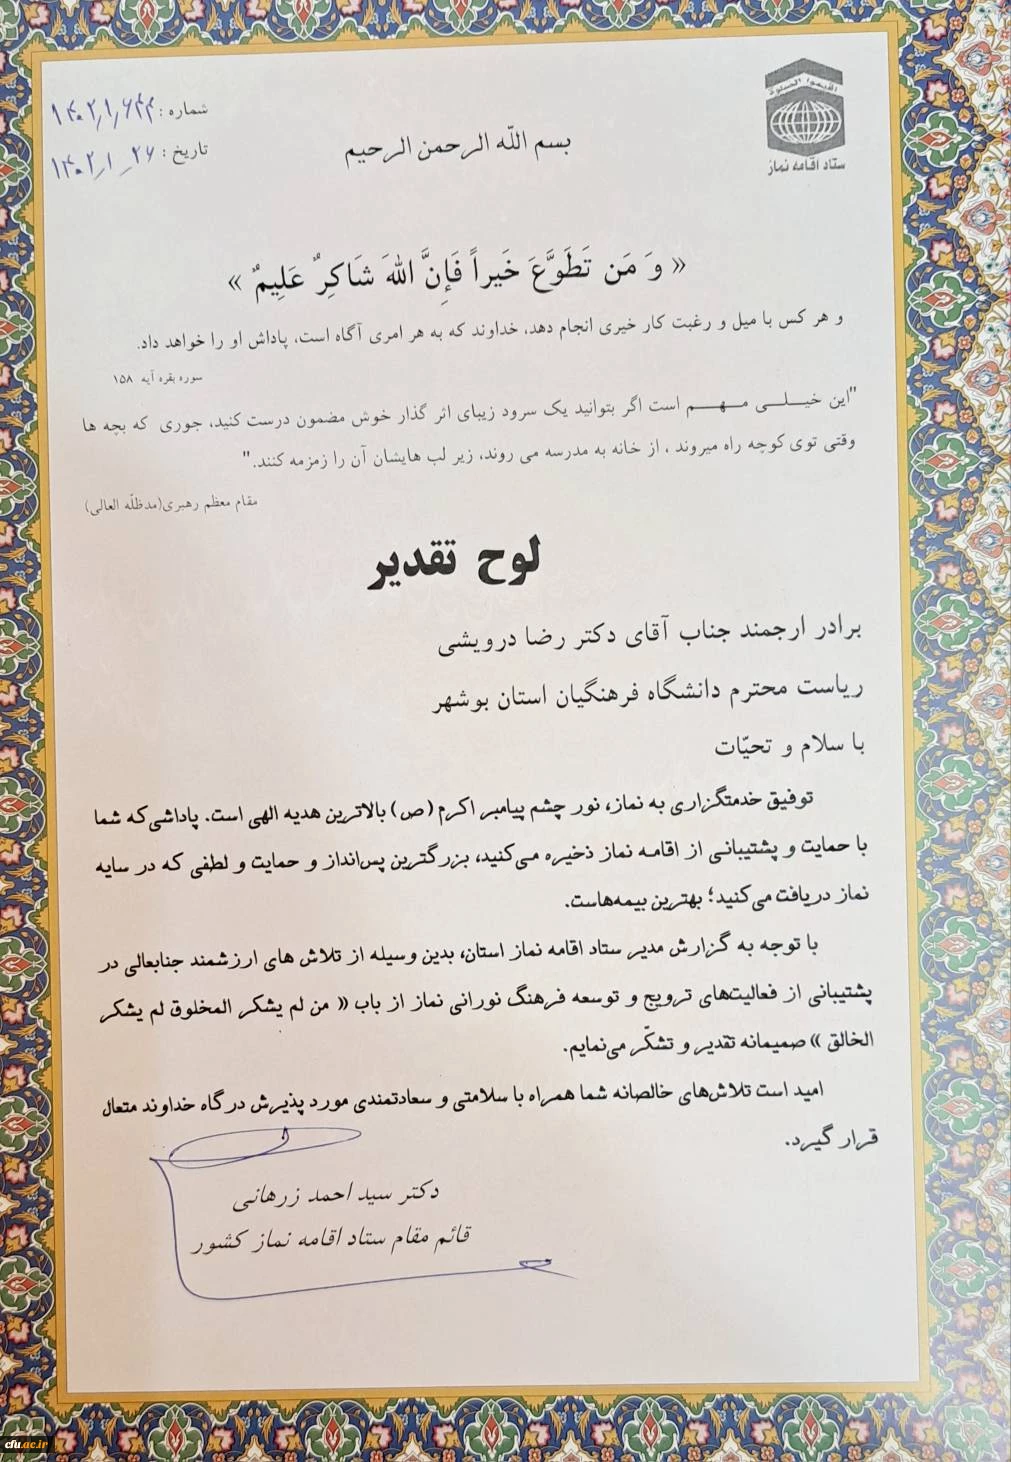 اقیموا الصلوة
ستاد اقامه نماز
شماره : ۱۴۰۲/۱/۶۴۴
تاریخ : ۱۴۰۲/۱_۲۶
بسم اللّه الرحمن الرحیم
« وَ مَن تَطَوَّعَ خَیراً فَإِنَّ اللهَ شَاکِرٌ عَلِیمٌ »
و هر کس با میل و رغبت کار خیری انجام دهد، خداوند که به هر امری آگاه است، پاداش او را خواهد داد.
سوره بقره آیه ۱۵۸
"این خیـــلـــی مـــهـــم است اگر بتوانید یک سرود زیبای اثر گذار خوش مضمون درست کنید، جوری که بچه ها
وقتی توی کوچه راه میروند ، از خانه به مدرسه می روند، زیر لب هایشان آن را زمزمه کنند."
مقام معظم رهبری(مدظلّه العالی)
لوح تقدیر
برادر ارجمند جناب آقای دکتر رضا درویشی
ریاست محترم دانشگاه فرهنگیان استان بوشهر
با سلام و تحیّات
توفیق خدمتگزاری به نماز، نور چشم پیامبر اکرم (ص) بالاترین هدیه الهی است. پاداشی‌که شما
با حمایت و پشتیبانی از اقامه نماز ذخیره می‌کنید، بزرگترین پس‌انداز و حمایت و لطفی که در سایه
نماز دریافت می‌کنید؛ بهترین بیمه‌هاست.
با توجه به گزارش مدیر ستاد اقامه نماز استان، بدین وسیله از تلاش های ارزشمند جنابعالی در
پشتیبانی از فعالیت‌های ترویج و توسعه فرهنگ نورانی نماز از باب « من لم یشکر المخلوق لم یشکر
الخالق » صمیمانه تقدیر و تشکّر می‌نمایم.
امید است تلاش‌های خالصانه شما همراه با سلامتی و سعادتمندی مورد پذیرش درگاه خداوند متعال
قرار گیرد.
دکتر سید احمد زرهانی
قائم مقام ستاد اقامه نماز کشور
cfu.ac.ir